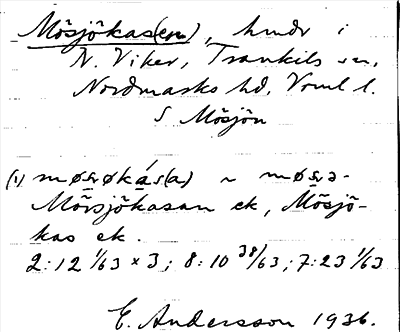 Mösjökas(en), hmdr i
N. Viker, Trankils sn,
Nordmarks hd, Vrml l.
S Mösjön
(1) møsₔøkás(a) ~ møsə-
Mörsjökasan ek, Mösjö-
kas ek.
2:12 1/63 × 3; 8:10 38/63; 7:23 1/63
E. Andersson 1936.